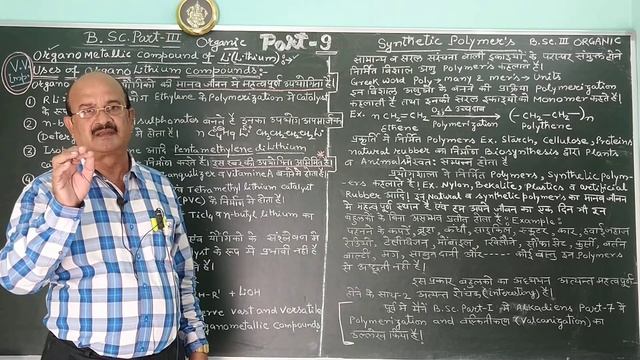 B.Sc. Part-III Organic Part-9
Organometallic compound of Li(Lithium):→
V.V. Imp.
Uses of Organo Lithium compounds:-
Organo यौगिकों की मानव जीवन में महत्वपूर्ण उपयोगिता है
① RLi Ethylene के Polymerization में Catalyst
② n- sulphonates बनाने है इनका उपयोग अपमार्जक
(Deter में होता है। n C4H9 Li CH3CH2CH2CH2Li
③ Iso आदि Pentamethylene dilithium
निर्माण करते है। इस स्तर की उपयोगिता
④ Tranquilizer व vitamine A बनाने में होता है।
Tetramethyl lithium catalyst
(PVC) के निर्माण में होता है।
TiCl4 व n-butyl lithium का
एवं यौगिकों के संश्लेषण में
के रूप में प्रभावी नहीं है
है।
H-R' + LiOH
serve vast and versatile
organometallic compounds
Synthetic Polymer's B.Sc. III ORGANIC
सामान्य व सरल संरचना वाली इकाइयों के परस्पर संयुक्त होने
निर्मित विशाल अणु Polymers कहलाता है।
Greek word Poly → many व mer's → Units
इन विशाल अणुओं के बनने की प्रक्रिया Polymerization
कहलाती है तथा इनकी सरल इकाइयों को Monomer कहते है।
Ex. n CH2=CH2 O2 उच्चदाब Polymerization (-CH2-CH2-)n
Ethene Polythene
प्रकृति में निर्मित Polymers Ex. Starch, Cellulose, Proteins
Natural Rubber का निर्माण Biosynthesis द्वारा Plants
व Animals में स्वतः सम्पन्न होता है
प्रयोगशाला में निर्मित Polymers, Synthetic Polym-
ers कहलाते है। Ex. Nylon, Bakelite, Plastics व artificial
Rubber आदि। इन Natural व synthetic polymers का मानव जीवन
में महत्वपूर्ण स्थान है एवं हम अपने जीवन का एक दिन भी इन
वस्तुओं के बिना असम्भव प्रतीत होता है। Example:-
पहनने के कपड़े, ब्रुश, कंघी, साइकिल, स्कूटर, कार, हवाईजहाज
रेडियो, टेलीविजन, मोबाइल, सोफासेट, कुर्सी, बर्तन
बाल्टी, मग, साबुनदानी और---- कोई वस्तु इन Polymers
से अछूती नहीं है।
इस प्रकार बहुलकों का अध्ययन अत्यन्त महत्वपूर्ण
होने के साथ-2 अत्यन्त रोचक (Interesting) है।
पूर्व में मैंने B.Sc. Part-I में Alkadiens Part-7 में
Polymerization and वल्कनीकरण (Vulcanization) का
उल्लेख किया है।